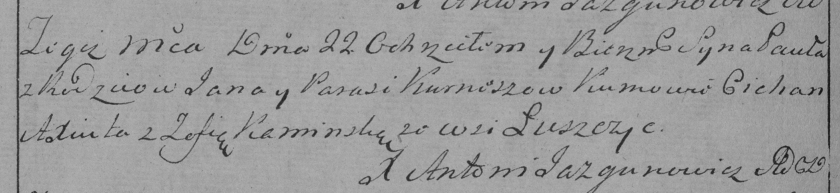 X Antoni Jazgunowicz
Tegoż mča Dnia 22 Ochrzciłem y Bierzm Syna Pauła
z Rodziców Jana y Parasi Kurneszow Kumowie Cichan
Axiuta z Zofią Kaminską ze wsi Łuszczyc.
X Antoni Jazgunowicz